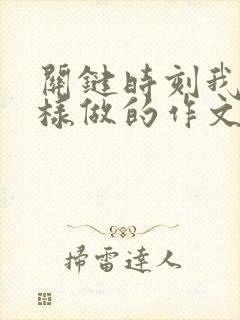 關鍵時刻我
樣做的作文
掃雷達人